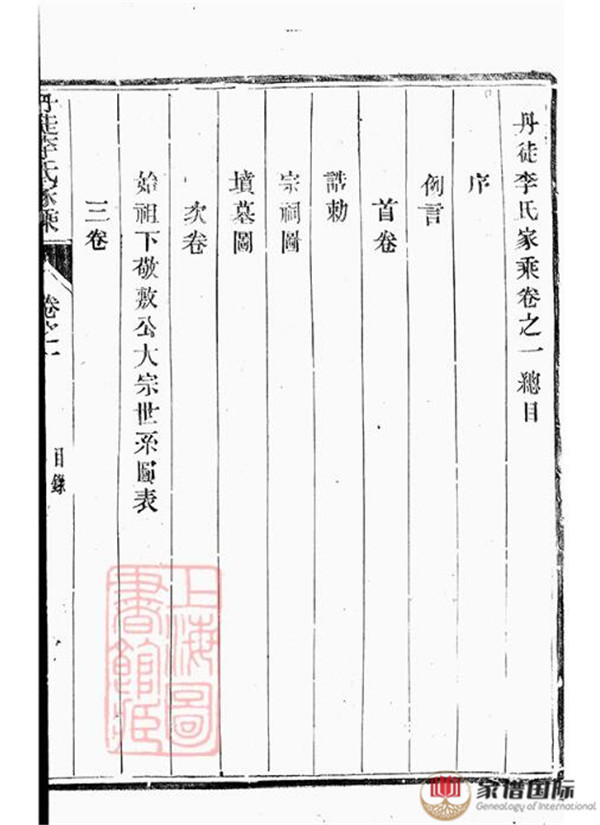 丹徒李氏家乘卷之一總目
序
例言
首卷
誥勅
宗祠圖
墳墓圖
次卷
始祖下敬敷公大宗世系圖表
三卷
丹徒李氏家乘
卷之一
目錄
上海圖書館藏
家谱国际
Genealogy of International